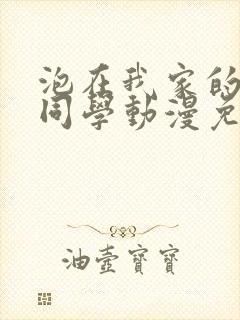 泡在我家的
同學動漫免
油壺寶寶